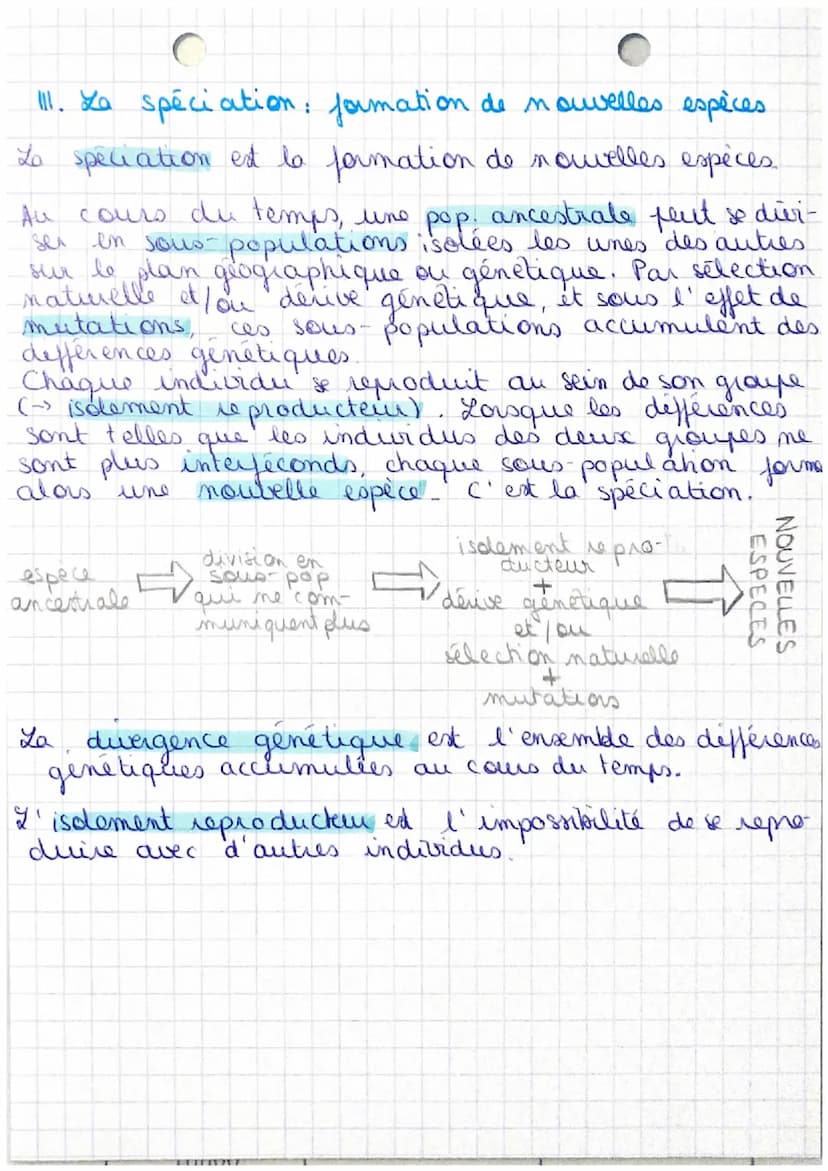 III. La spéciation : formation de nouvelles espèces
La spéciation est la formation de nouvelles espèces.
Au cours du temps, une pop. ancestrale peut se divi-
ser en sous-populations isolées les unes des autres
sur le plan géographique ou génétique. Par sélection
naturelle et/ou dérive génétique, et sous l'effet de
mutations, ces sous-populations accumulent des
différences génétiques.
Chaque individu se reproduit au sein de son groupe
(→ isolement reproducteur). Lorsque les différences
sont telles que les individus des deux groupes ne
sont plus interféconds, chaque sous-population forme
alors une nouvelle espèce. C'est la spéciation.
espèce
ancestrale
division en
sous-pop
qui ne com-
muniquent plus
isolement repro-
ducteur
+
dérive génétique
et/ou
sélection naturelle
+
mutations
NOUVELLES
ESPECES
La divergence génétique est l'ensemble des différences
génétiques accumulées au cours du temps.
L'isolement reproducteur est l'impossibilité de se repro-
duire avec d'autres individus.